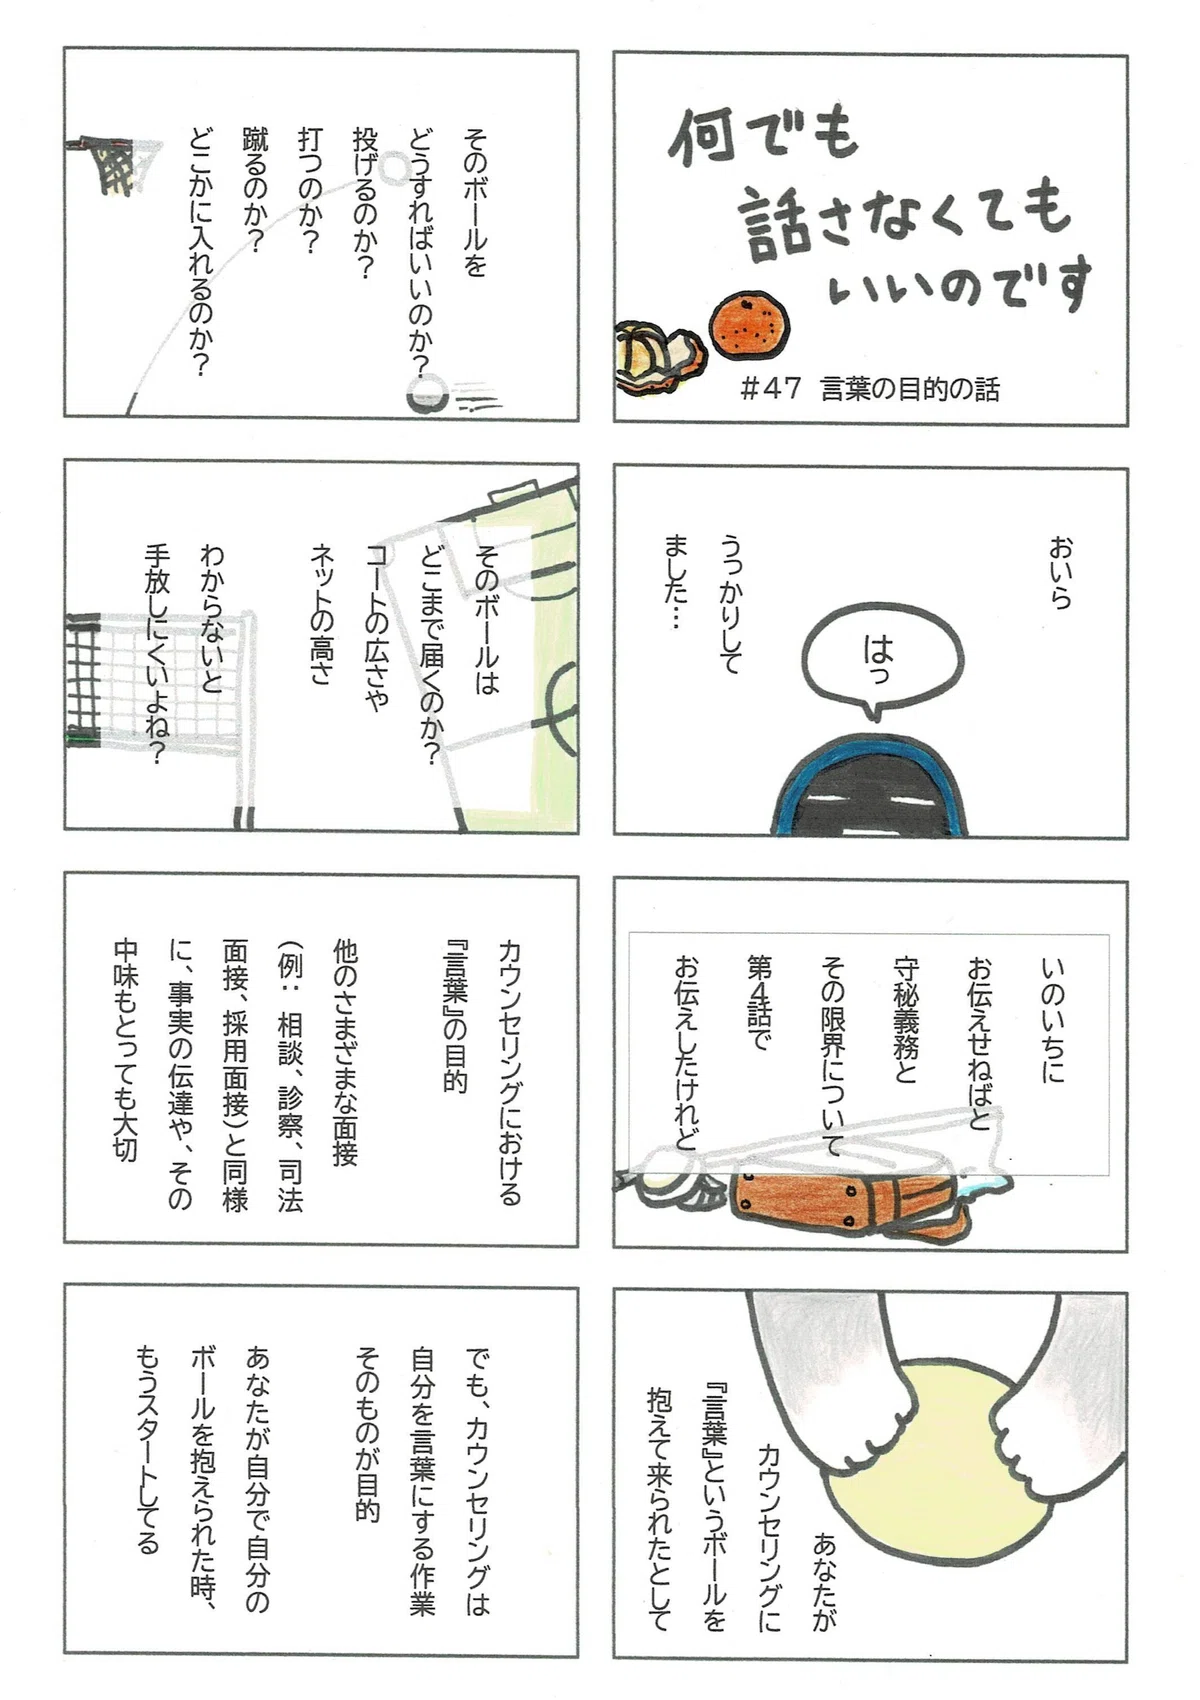 何でも
話さなくても
いいのです
#47 言葉の目的の話
おいら
はっ
うっかりして
ました…
いのいちに
お伝えせねばと
守秘義務と
その限界について
第4話で
お伝えしたけれど
あなたが
カウンセリングに
『言葉』というボールを
抱えて来られたとして
そのボールを
どうすればいいのか?
投げるのか?
打つのか?
蹴るのか?
どこかに入れるのか?
そのボールは
どこまで届くのか?
コートの広さや
ネットの高さ
わからないと
手放しにくいよね?
カウンセリングにおける
『言葉』の目的
他のさまざまな面接
(例: 相談、診察、司法
面接、採用面接)と同様
に、事実の伝達や、その
中味もとっても大切
でも、カウンセリングは
自分を言葉にする作業
そのものが目的
あなたが自分で自分の
ボールを抱えられた時、
もうスタートしてる